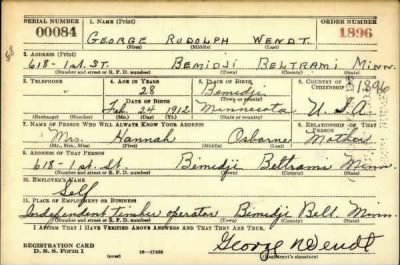 SERIAL NUMBER 1. NAME (Print) ORDER NUMBER
00084 GEORGE RUDOLPH WENDT 1896
(First) (Middle) (Last)
2. ADDRESS (Print)
618- 1st. ST. BEMIDJI BELTRAMI MINN.
(Number and street or R. F. D. number) (Town) (County) (State)
3. TELEPHONE 4. AGE IN YEARS 5. PLACE OF BIRTH 6. COUNTRY OF CITIZENSHIP
28 Bemidji
DATE OF BIRTH (Town or county)
Feb. 24 1912 Minnesota U.S.A.
(Mo.) (Day) (Yr.) (State or country)
1896
7. NAME OF PERSON WHO WILL ALWAYS KNOW YOUR ADDRESS 8. RELATIONSHIP OF THAT PERSON
Mrs. Hannah Osborne Mother
(Mr., Mrs., Miss) (First) (Middle) (Last)
9. ADDRESS OF THAT PERSON
618- 1st St. Bimidji Beltrami Minn
(Number and street or R. F. D. number) (Town) (County) (State)
10. EMPLOYER'S NAME
Self
11. PLACE OF EMPLOYMENT OR BUSINESS
Independent timber operator Bimidji Belt. Minn.
(Number and street or R. F. D. number) (Town) (County) (State)
I AFFIRM THAT I HAVE VERIFIED ABOVE ANSWERS AND THAT THEY ARE TRUE.
REGISTRATION CARD
D. S. S. Form 1 (over) George Wendt
(Registrant's signature)